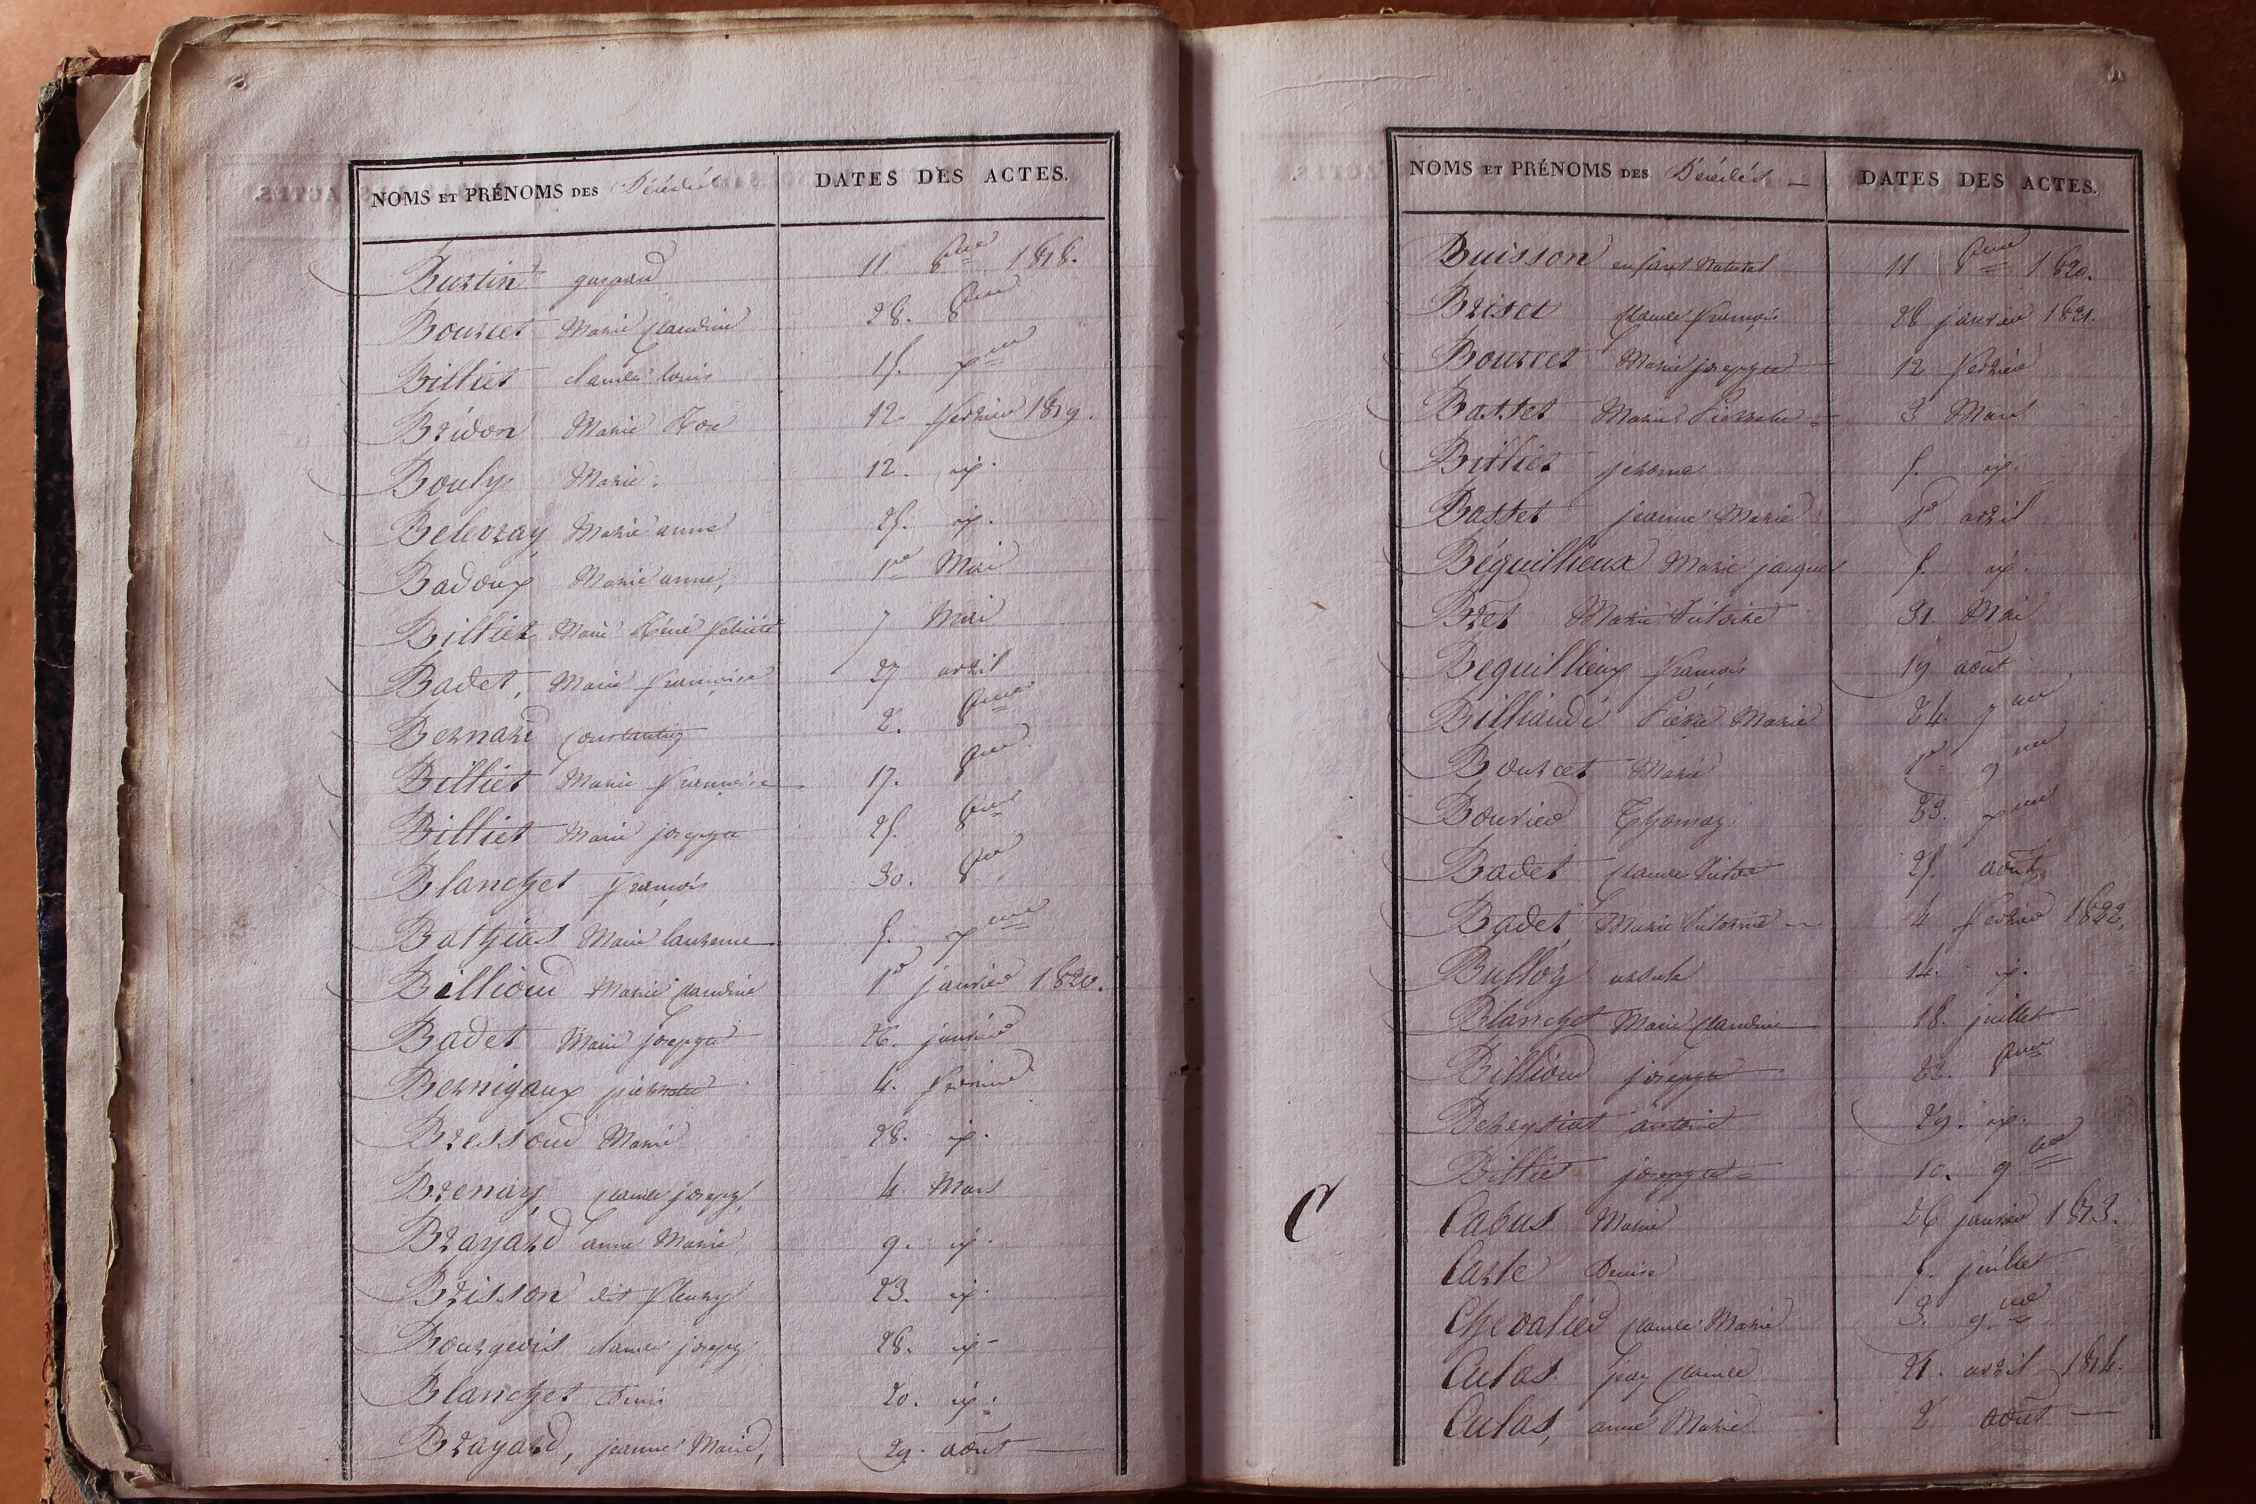 NOMS ET PRÉNOMS DES Décédés DATES DES ACTES.
Burtin gaspard 11 8bre 1818.
Bourcet Marie Claudine 28. 8bre
Billiet Claude louis
Bridon Marie 12. fevrier 1819.
Bouly Marie. 12. id.
Belevray Marie anne 25. id.
Badoux Marie anne, 1er Mai
Billiet Marie félicité 7 Mai
Badet, Marie françoise 27 avril
Bernard 2. 8bre
Billiet Marie françoise 17. 8bre
Billiet Marie josephte 25. 8bre
Blanchet françois 30. 8bre
Bathias Marie laurence 5. xbre
Billioud Marie Claudine 1er janvier 1820.
Badet Marie josephte 26. janvier
Bernigaux pierrette 4. fevrier
Bressoud Marie 28. id.
Brenay, Claude joseph 4 Mars
Brayard anne Marie 9. id.
Brisson dit fleury 23. id.
Bourgeois Claude joseph 28. id
Blanchet Denis 20. id.
Brayard, jeanne Marie, 29. août
NOMS ET PRÉNOMS DES Décédés DATES DES ACTES.
Buisson enfant Naturel 11 8bre 1820.
Briset Claude françois 28 janvier 1821.
Bourcet Marie josephte 12 fevrier
Bassset Marie Pierrette 3 Mars
Billiet jerome 5. id.
Basset jeanne Marie 1er avril
Béquillieux Marie jacques 5. id.
Bret Marie Victoire 31. Mai
Bequillieux françois 19 août
Billiaudé Pierre Marie 24. 7bre
Bourcet Marie 1er 9bre
Bouvier Thomas 23. xbre
Badet Claude Victor 25. août
Badet Marie Victorine 4 fevrier 1822.
Bulloz ursule 14. id.
Blanchet Marie Claudine 18. juillet
Billioud josephte 22. 8bre
Bereysiat antoine 29. id.
Billiet josephte 10. 9bre
C Cabus Marie 26 janvier 1813.
Carle Denise 5. juillet
Chevalier Claude Marie 3. 9bre
Culas Jean Claude 21. avril 1814.
Culas, anne Marie 2 août